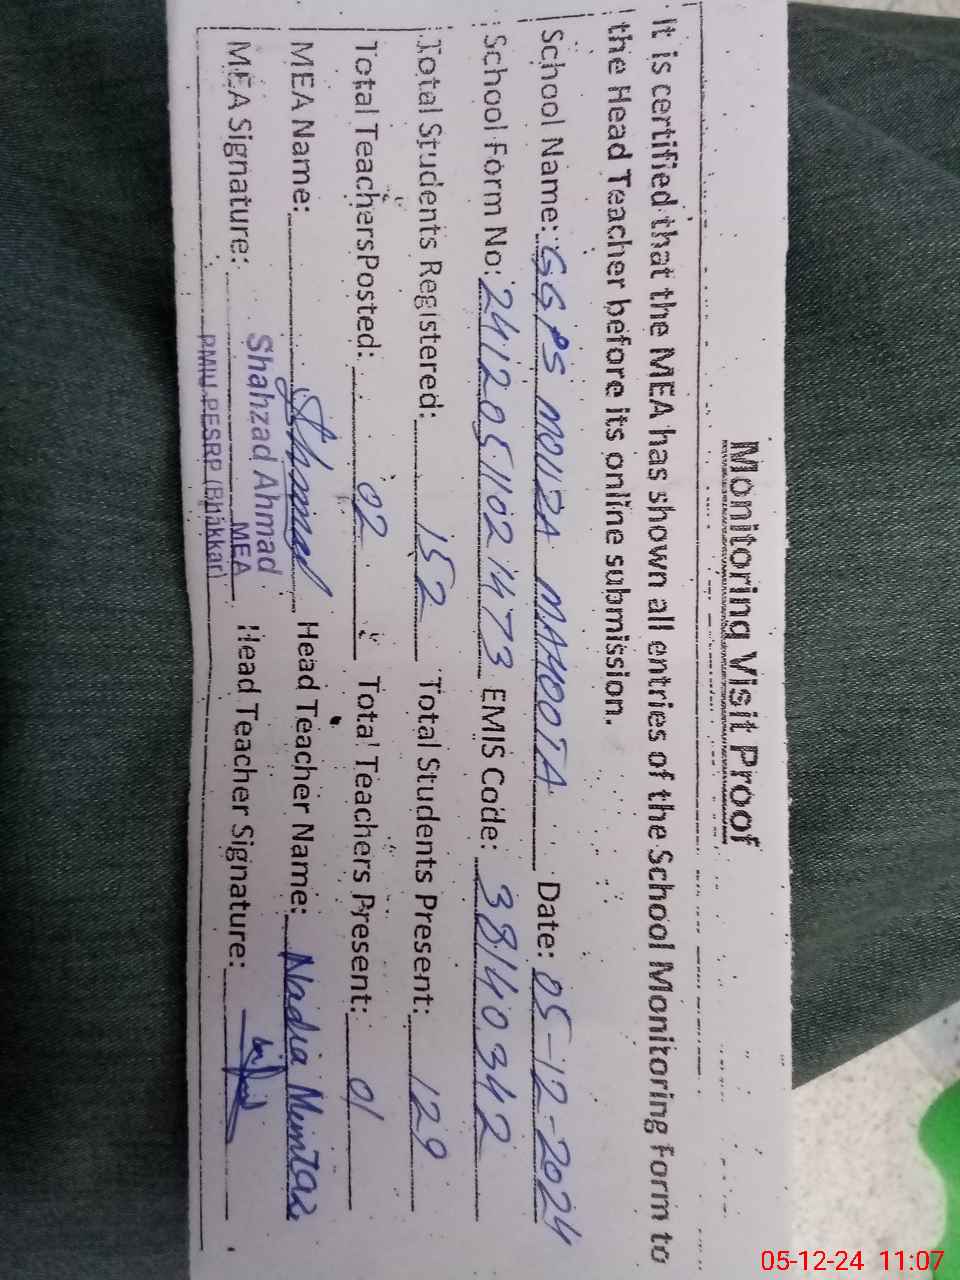 Monitoring Visit Proof
It is certified that the MEA has shown all entries of the School Monitoring Form to
the Head Teacher before its online submission.
School Name: GGPS MOUZA MAHOOTA Date: 05-12-2024
School Form No: 24120511021473 EMIS Code: 38140342
Total Students Registered: 152 Total Students Present: 129
Total TeachersPosted: 02 Total Teachers Present: 01
MEA Name: Ahmad Head Teacher Name: Nadia Mumtaz
MEA Signature: Head Teacher Signature:
Shahzad Ahmad
MEA
PMIU-PESRP (Bhakkar)
05-12-24 11:07